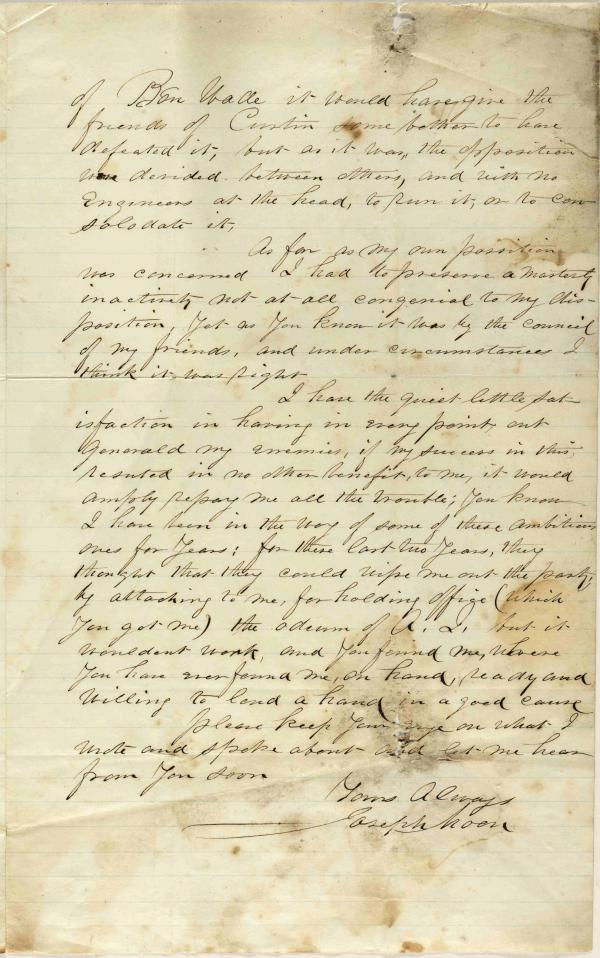 of Ben Wade it would have give the
friends of Curtin some bother to have
defeated it, but as it was, the opposition
was devided between others, and with no
Engineers at the head, to run it, or to con
solodate it,
As far as my own possition
was concerned I had to preserve a masterly
inactivity not at all congenial to my dis-
position, Yet as You know it was by the council
of my friends, and under circumstances I
think it was right
I have the quiet little sat
isfaction in having in every point, out
Generald my enemies, if my success in this,
resulted in no other benefit, to me, it would
amply repay me all the trouble; You know
I have been in the way of some of these ambitious
ones for Years; for these last two Years, they
thought that they could wipe me out the party,
by attaching to me, for holding office (which
You got me) the odeum of A. J. but it
wouldent work, and You found me, where
You have ever found me, on hand, ready and
willing to lend a hand in a good cause
please keep Your eye on what I
wrote and spoke about and let me hear
from You soon
Yours Always
Joseph Moon